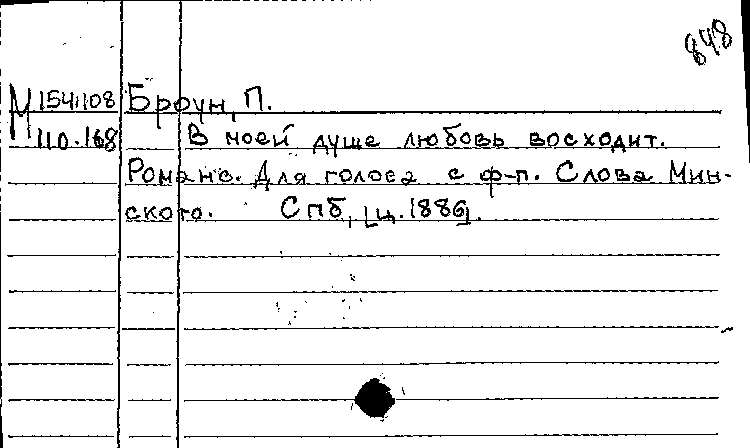 848
М 1541108 Броун, П.
110.168 В моей душе любовь восходит.
Романс. Для голоса с ф-п. Слова Мин-
ского. Спб, [ц. 1886].